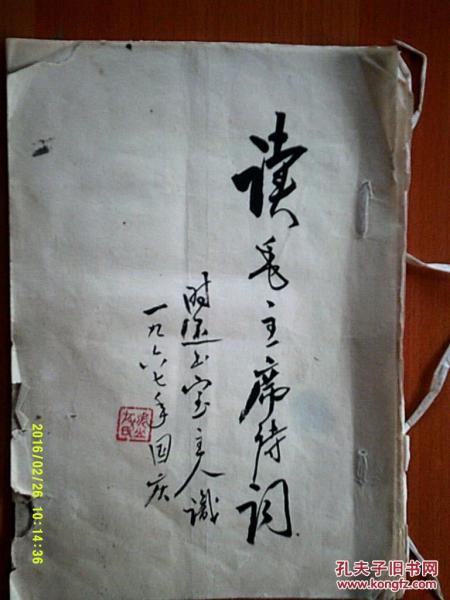 读毛主席诗词
时室主人識
一九六七年国庆
2016/02/26 10:14:36
孔夫子旧书网
www.kongfz.com